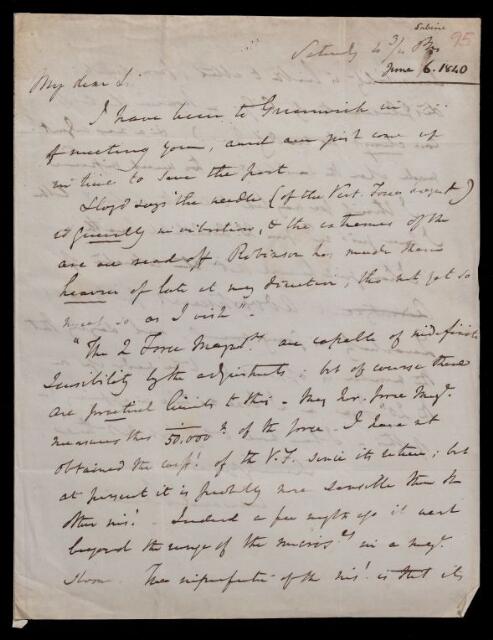 Sabine
95
Saturday 4 3/4
June 6. 1840
My dear S.
I have been to Greenwich in
of meeting you, and am just come up
in time to save the post.
Lloyd says "the needle (of the Vert. Force magnet)
is generally in vibration, & the extremes of the
arc are read off. Robinson has made them
heavier of late at my direction, tho' not yet so
as I wish".
"The 2 Force Magnets are capable of indefinite
sensibility by the adjustments: but of course there
are practical limits to this - My Hor. Force Magt.
measures this 1/50.000th of the force. I have not
obtained the coefft. of the V.F. since its return; but
at present it is probably more sensible than the
other inst. Indeed a few nights ago it went
beyond the range of the micrs. in a magc.
storm. The imperfection of the inst. is that its